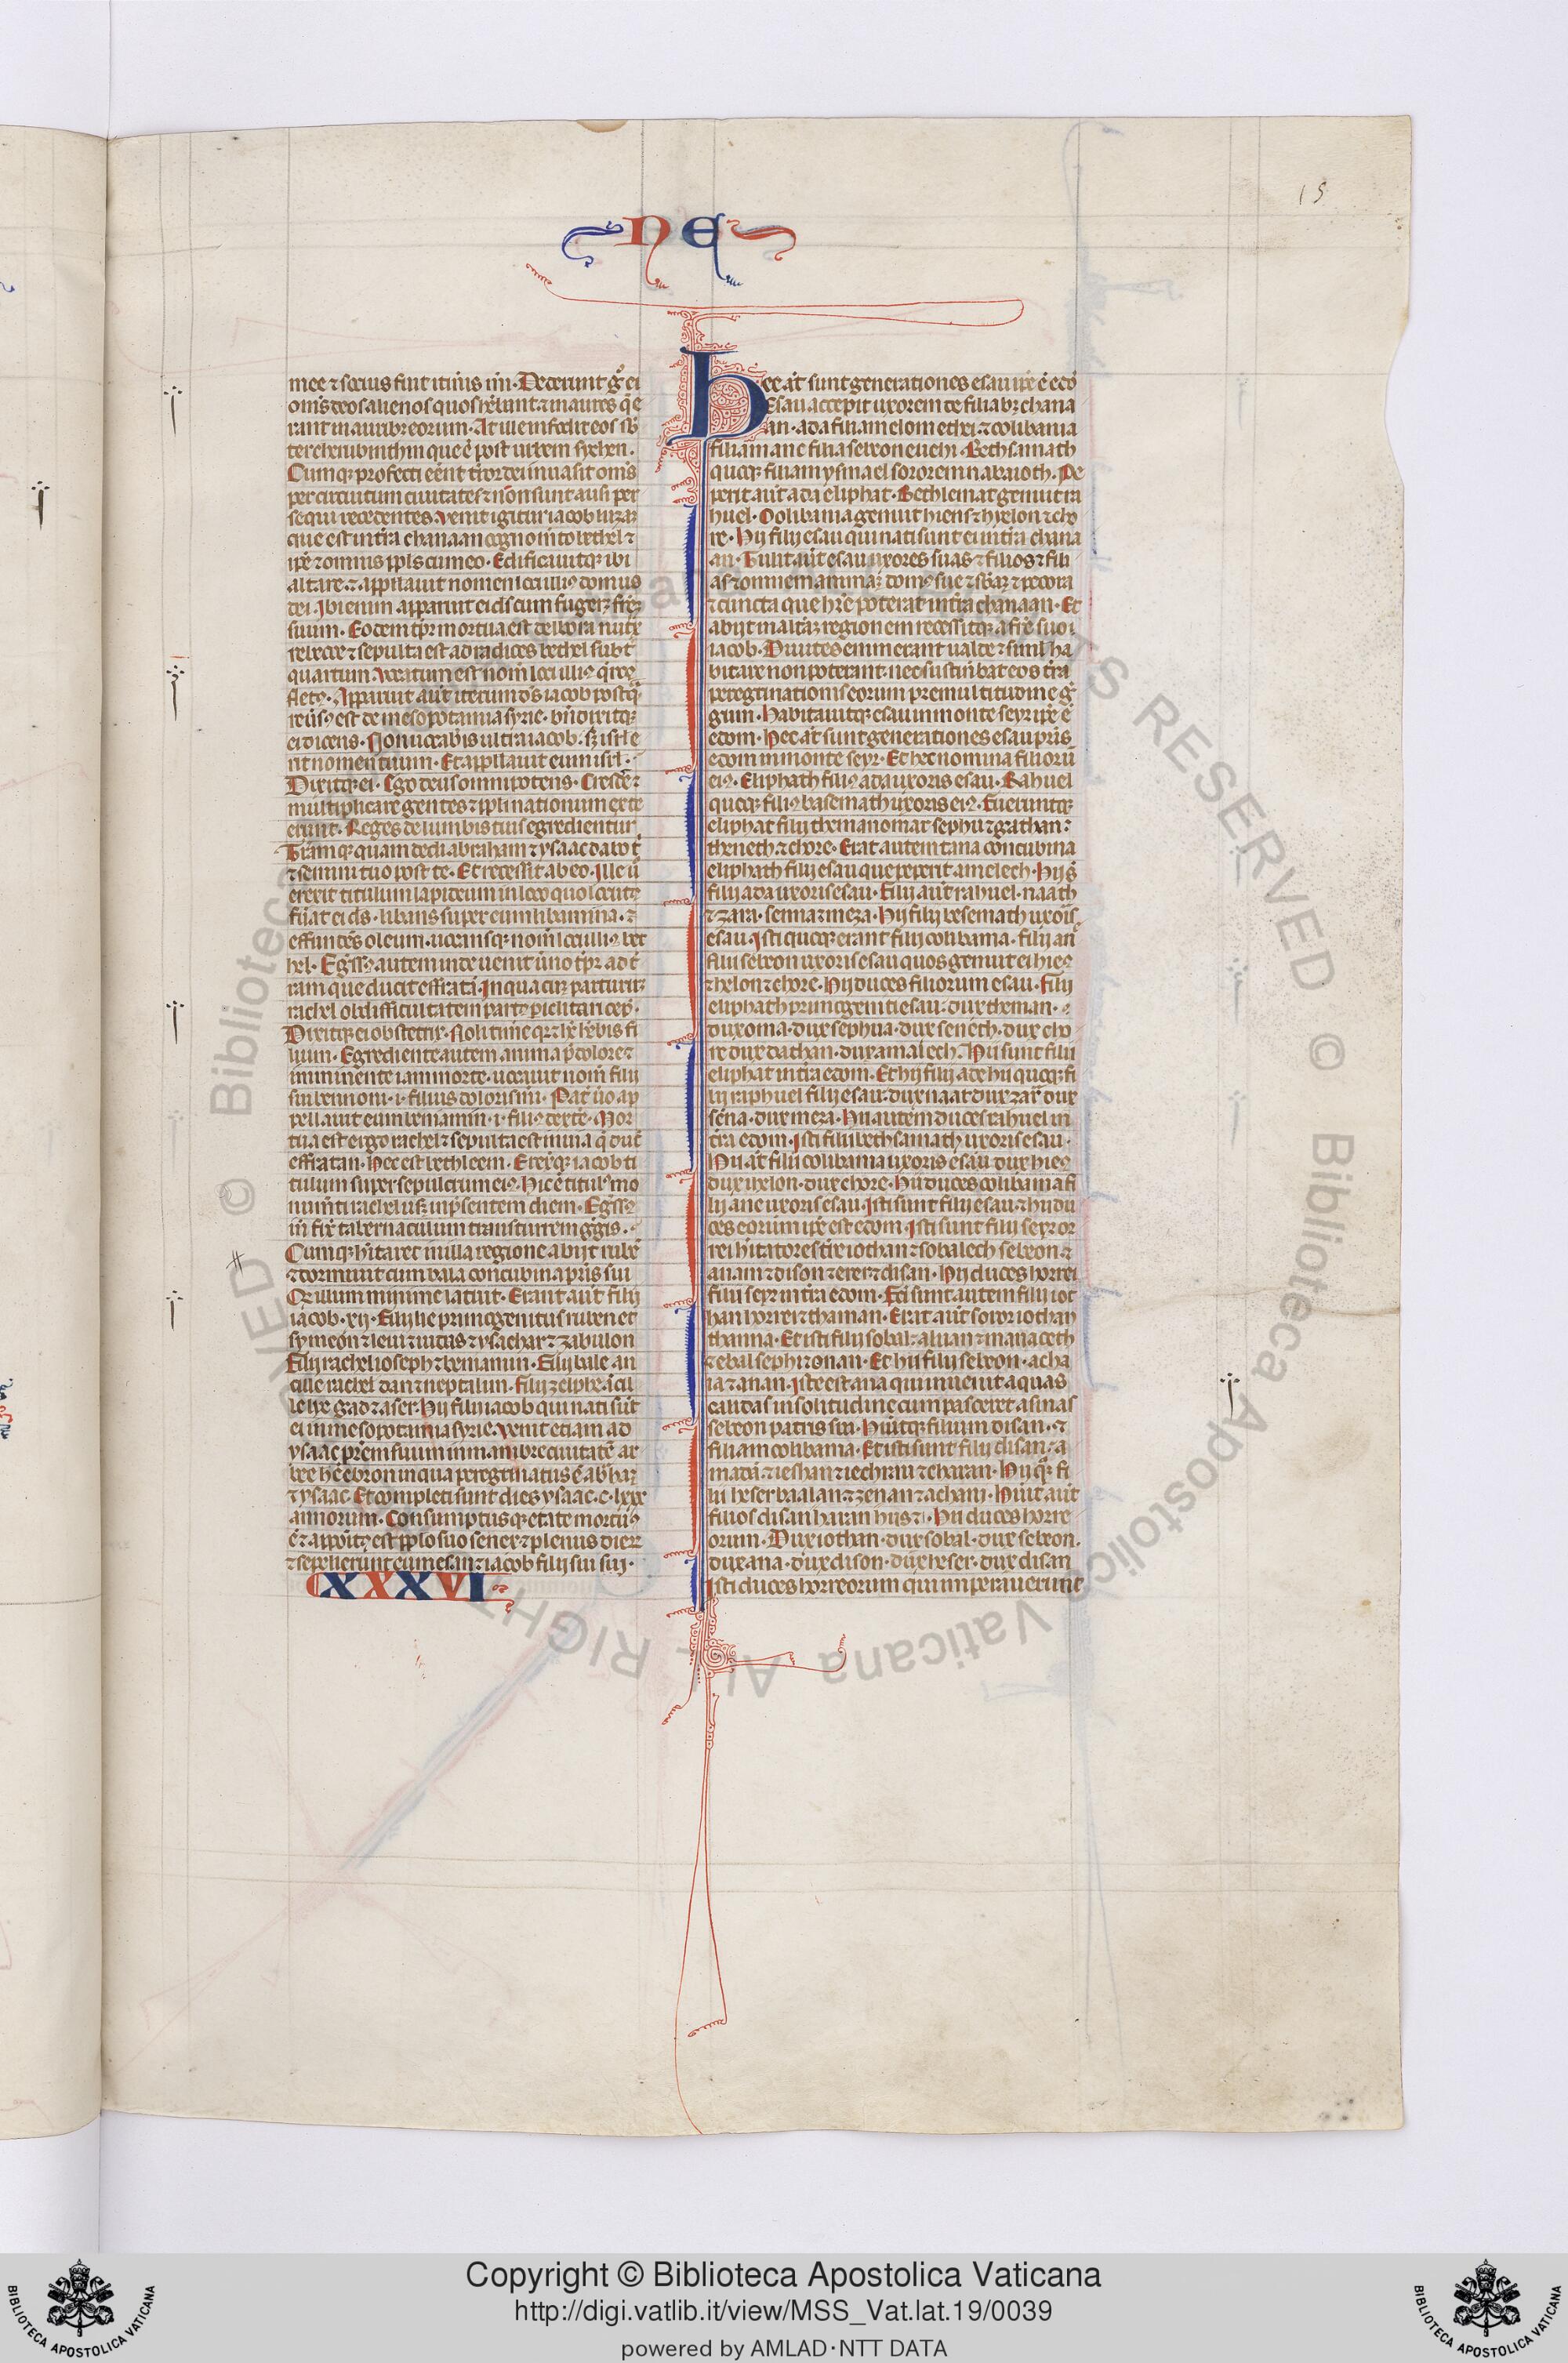 15
NE
mee ⁊ socius fuit itineris mei. Dederunt g̃ ei
oms deos alienos quos hẽbant ⁊ inaures q̃ e
rant in auribus eorum. At ille infodit eos sb̃
ter therubinthum que ẽ post urbem sychen.
Cumq; profecti eẽnt t̃ror dei inuasit oms
per circuitum ciuitates ⁊ non sunt ausi per
sequi recedentes. Venit igitur iacob luzaz
que est in t̃ra chanaan cognom̃to bethel ⁊
ip̃e ⁊ omnis pp̃ls cum eo. Edificauitq; ibi
altare. ⁊ appellauit nomen loci illiꝰ domus
dei. Ibi enim apparuit ei ds̃ cum fugeret frẽz
suum. Eodem tp̃r mortua est delbora nutx̃
rebecce ⁊ sepulta est ad radices bethel subt̃
quercum. Vocatum est nom̃ loci illiꝰ q̃rcꝰ
fletꝰ. Apparuit aũt iterum ds̃ iacob postq̃
reũsꝰ est de mesopotamia syrie. bñdixitq;
ei dicens. Non uocaberis ultra iacob. sʒ isrl̃ e
rit nomen tuum. Et appellauit eum isrl̃.
Dixitq; ei. Ego deus omnipotens. Cresce ⁊
multiplicare gentes ⁊ ppli nationum ex te
erunt. Reges de lumbis tuis egredientur
Terramq; quam dedi abraham ⁊ ysaac dabo t̃
⁊ semini tuo post te. Et recessit ab eo. Ille ũ
erexit titulum lapideum in loco quo locutꝰ
fũat ei ds̃. libans super eum libamina. ⁊
effundẽs oleum. uocansq; nom̃ loci illiꝰ bet
hel. Egressꝰ autem inde uenit ũno tp̃r ad t̃
ram que ducit effratã. In qua cuz parturiret
rachel ob difficultatem partꝰ piclitari cep̃.
Dixitq; ei obstetrix. Noli time q; ⁊ hc̃ hẽbis fi
lium. Egrediente autem anima p̃ dolore ⁊
imminente iam morte. uocauit nom̃ filii
sui bennoni. i. filius doloris mei. Pat̃ ũo ap
pellauit eum beniamin. i. filiꝰ dextẽ. Mor
tua est ergo rachel ⁊ sepulta est in uia q̃ duc̃
effratan. Hec est bethleem. Erexitq; iacob ti
tulum super sepulcrum eiꝰ. Hic ẽ titulꝰ mo
num̃ti rachel usq; in p̃sentem diem. Egressꝰ
in̄ fix̃ tabernaculum trans turrem gregis.
Cumq; hitaret in illa regione abijt rubẽ
⁊ dormiuit cum bala concubina pr̃is sui
Qd̃ illum minime latuit. Erant aũt filij
iacob. xij. Filij lie primogenitus ruben et
symeon ⁊ leui ⁊ iudas ⁊ ysachar ⁊ zabulon
Filij rachel ioseph ⁊ beniamin. Filij bale an
cille rachel dan ⁊ neptalim. Filij zelphe ãcil
le lye gad ⁊ aser. Hij filij iacob qui nati sũt
ei in mesopotamia syrie. Venit etiam ad
ysaac pr̃em suum in mambre ciuitatẽ ar
bee hec ebron in qua peregrinatus ẽ abhaz
⁊ ysaac. Et completi sunt dies ysaac. c. lxxx
annorum. Consumptusq; etate mortuꝰ
ẽ ⁊ apposit̃ est pplo suo senex ⁊ plenus dierz
⁊ sepelierunt eum esau ⁊ iacob filij sui sui.
XXXVI
Hec aũt sunt generationes esau ip̃e ẽ edo
Esau accepit uxorem de filiabz chana
an. ada filiam elom ethei ⁊ oolibama
filiam ane filia sebeon euehi. Bethsamath
quoq; filiam ysmael sororem nabaioth. Pe
perit aũt ada eliphat. Bethlemat genuit ra
huel. Oolibama genuit hieus ⁊ hyelon ⁊ cho
re. Hij filij esau qui nati sunt ei in t̃ra chana
an. Tulit aũt esau uxores suas ⁊ filios ⁊ fili
as ⁊ omnem animaz domꝰ sue ⁊ sb̃az ⁊ pecora
⁊ cuncta que hr̃e poterat in t̃ra chanaan. Et
abijt in alt̃az regionem recessitq; a fr̃e suo
iacob. Diuites enim erant ualde ⁊ simul ha
bitare non poterant. nec sustinebat eos t̃ra
peregrinationis eorum pre multitudine g̃
gum. Habitauitq; esau in monte seyr ip̃e ẽ
edom. Hec aũt sunt generationes esau pr̃is
edom in monte seyr. Et hec nomina filiorũ
eiꝰ. Eliphath filiꝰ ada uxoris esau. Rahuel
quoq; filiꝰ basemath uxoris eiꝰ. Fueruntq;
eliphat filij theman omar sephu ⁊ gathan ⁊
theneth ⁊ chore. Erat autem tana concubina
eliphath filij esau que peperit amelech. Hij s̃
filij ada uxoris esau. Filij aũt rahuel. naath
⁊ zara. senna ⁊ meza. Hij filij besemath uxoris
esau. Isti quoq; erant filij oolibama. filij an̄
filii sebeon uxoris esau quos genuit ei hieꝰ
⁊ helon ⁊ chore. Hij duces filiorum esau. filij
eliphath primogeniti esau. dux theman.
dux oma. dux sephua. dux seneth. dux cho
re dux dathan. dux amalech. Hij sunt filii
eliphat in t̃ra edom. Et hij filij ade hij quoq; fi
lij raphuel filij esau. dux naat dux zar̃ dux
sena. dux meza. Hij autem duces rahuel in
t̃ra edom. Isti filii bethsamath uxoris esau.
Hij aũt filii oolibama uxoris esau dux hieꝰ
dux hielon. dux chore. Hij duces oolibama fi
lij ane uxoris esau. Isti sunt filij esau ⁊ hij du
ces eorum ip̃e est edom. Isti sunt filij seyr or
rei hitatores t̃re iothan ⁊ sobalech sebeon ⁊
anam ⁊ dison ⁊ erer ⁊ disan. Hij duces horrei
filij seyr in t̃ra edom. Fc̃i sunt autem filij iot
han horrei ⁊ thaman. Erat aũt soror iothan
thanna. Et isti filij sobal: aluan ⁊ manaceth
⁊ ebal sephi ⁊ onan. Et hij filij sebeon. acha
ia ⁊ anan. Iste est ana qui inuenit aquas
calidas in solitudine cum pasceret asinas
sebeon patris sui. Huitq; filium disan. ⁊
filiam oolibama. Et isti sunt filij disan: a
madã ⁊ iesban ⁊ iechrim ⁊ charan. Hij q̃; fi
lii heser baalan ⁊ zenan ⁊ achan. Huit aũt
filios disan huran hus ⁊. Hij duces horre
orum. Dux iothan. dux sobal. dux sebeon.
dux ana. dux dison. dux heser. dux disan
Isti duces horreorum qui imperauerunt
Copyright © Biblioteca Apostolica Vaticana
http://digi.vatlib.it/view/MSS_Vat.lat.19/0039
powered by AMLAD·NTT DATA